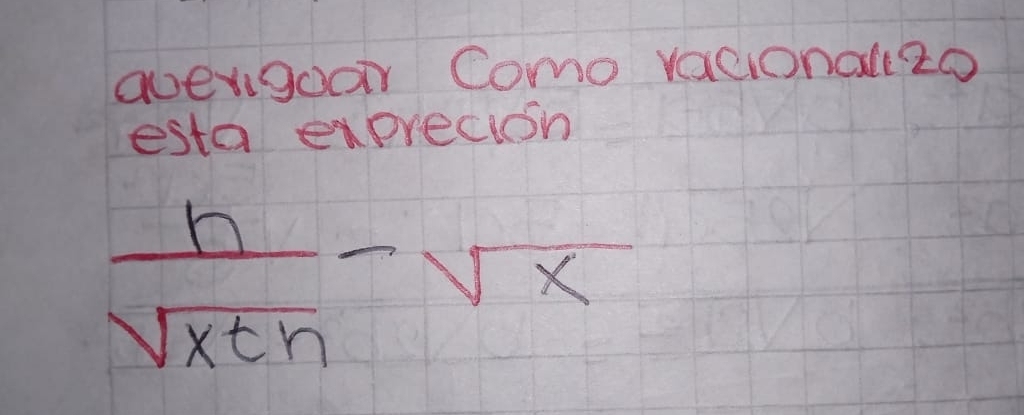 averiguar Como racionalizo
esta expreción
h
— - √x
√x+h